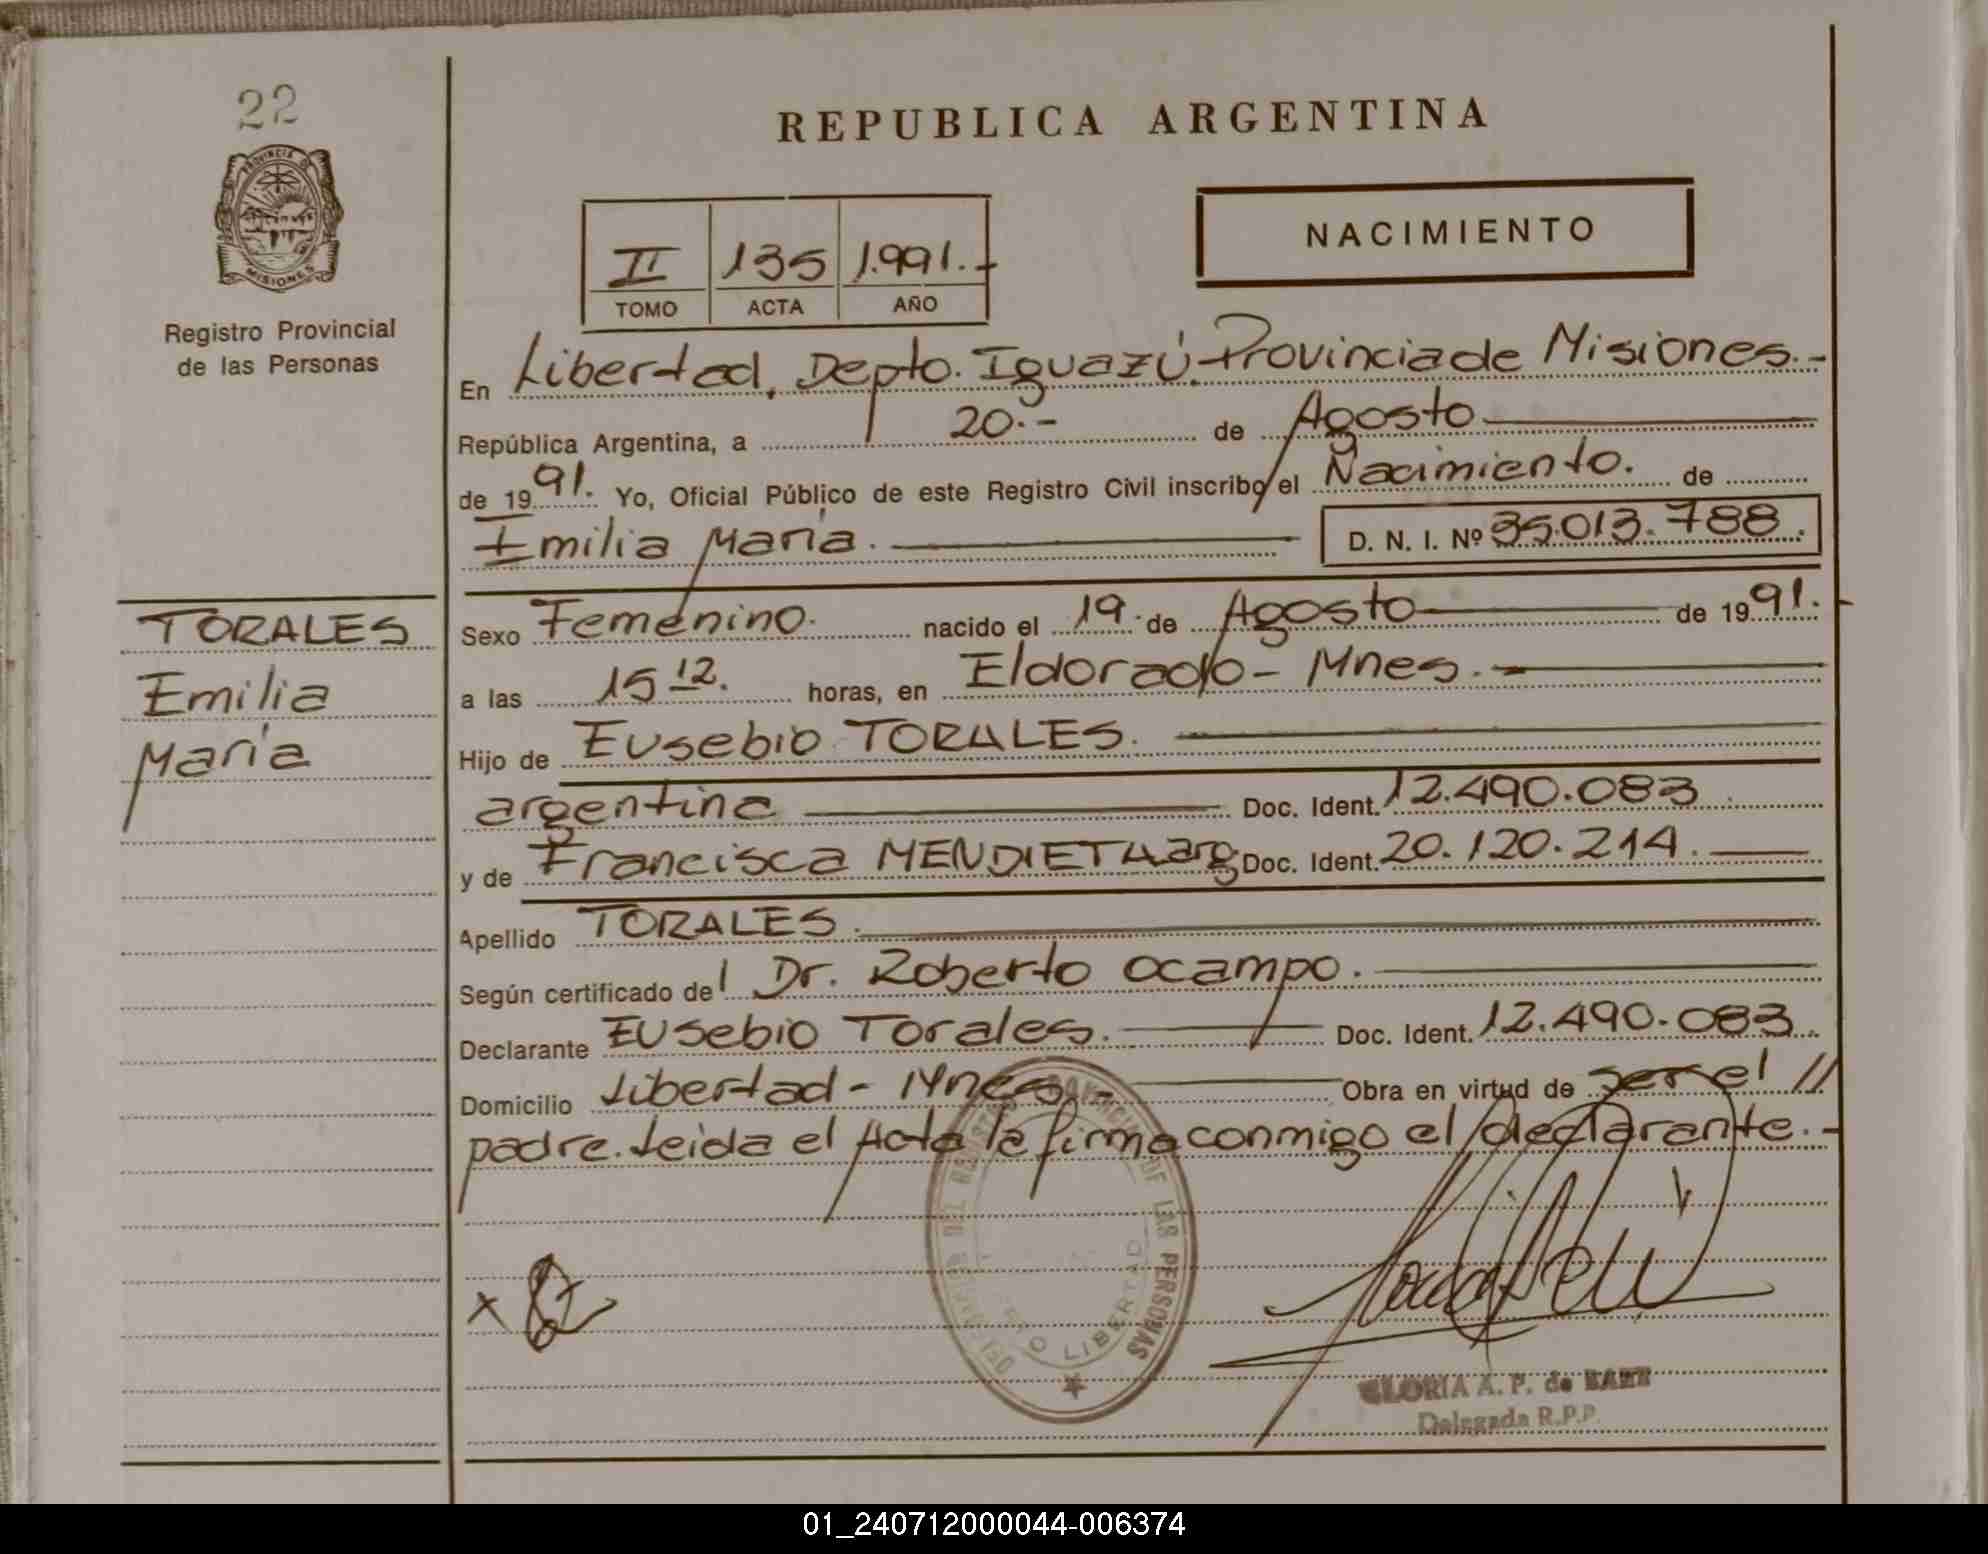 22
PROVINCIA DE
MISIONES
Registro Provincial
de las Personas
REPUBLICA ARGENTINA
II 135 1.991.-
TOMO ACTA AÑO
NACIMIENTO
En Libertad, Depto. Iguazú Provincia de Misiones.-
República Argentina, a 20.- de Agosto
de 1991. Yo, Oficial Público de este Registro Civil inscribo el Nacimiento. de
Emilia María. D. N. I. Nº 35.013.788.
TORALES
Emilia
María
Sexo Femenino. nacido el 19. de Agosto de 1991.-
a las 15 12. horas, en Eldorado - Mnes.-
Hijo de Eusebio TORALES.
argentina Doc. Ident. 12.490.083
y de Francisca MENDIETA arg Doc. Ident. 20.120.214.
Apellido TORALES.
Según certificado del Dr. Roberto Ocampo.
Declarante Eusebio Torales. Doc. Ident. 12.490.083
Domicilio Libertad - Mnes.- Obra en virtud de ser el //
padre. Leida el Acta la firma conmigo el declarante.-
DEL REGISTRO PROVINCIAL DE LAS PERSONAS
LIBERTAD
x
GLORIA A. P. de
Delegada R.P.P.
01_240712000044-006374